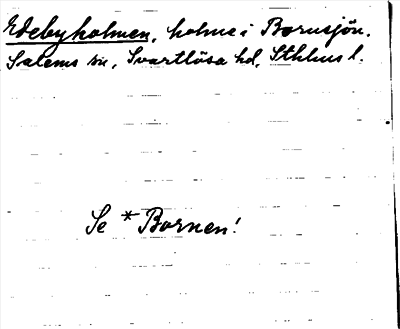 Edebyholmen, holme i Bornsjön.
Salems sn, Svartlösa hd, Sthlms l.
Se *Bornen!